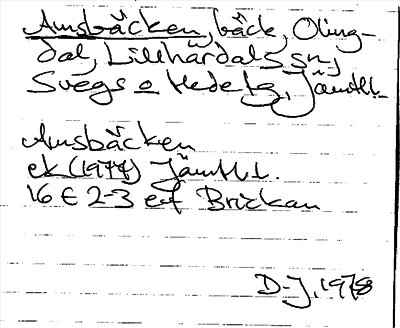 Amsbäcken, bäck, Oling-
dal, Lillhärdals sn,
Svegs o Hede tg, Jämtl.
Amsbäcken
ek (1974) Jämtl.
16 E 2-3 ef Brickan
D-J, 1978